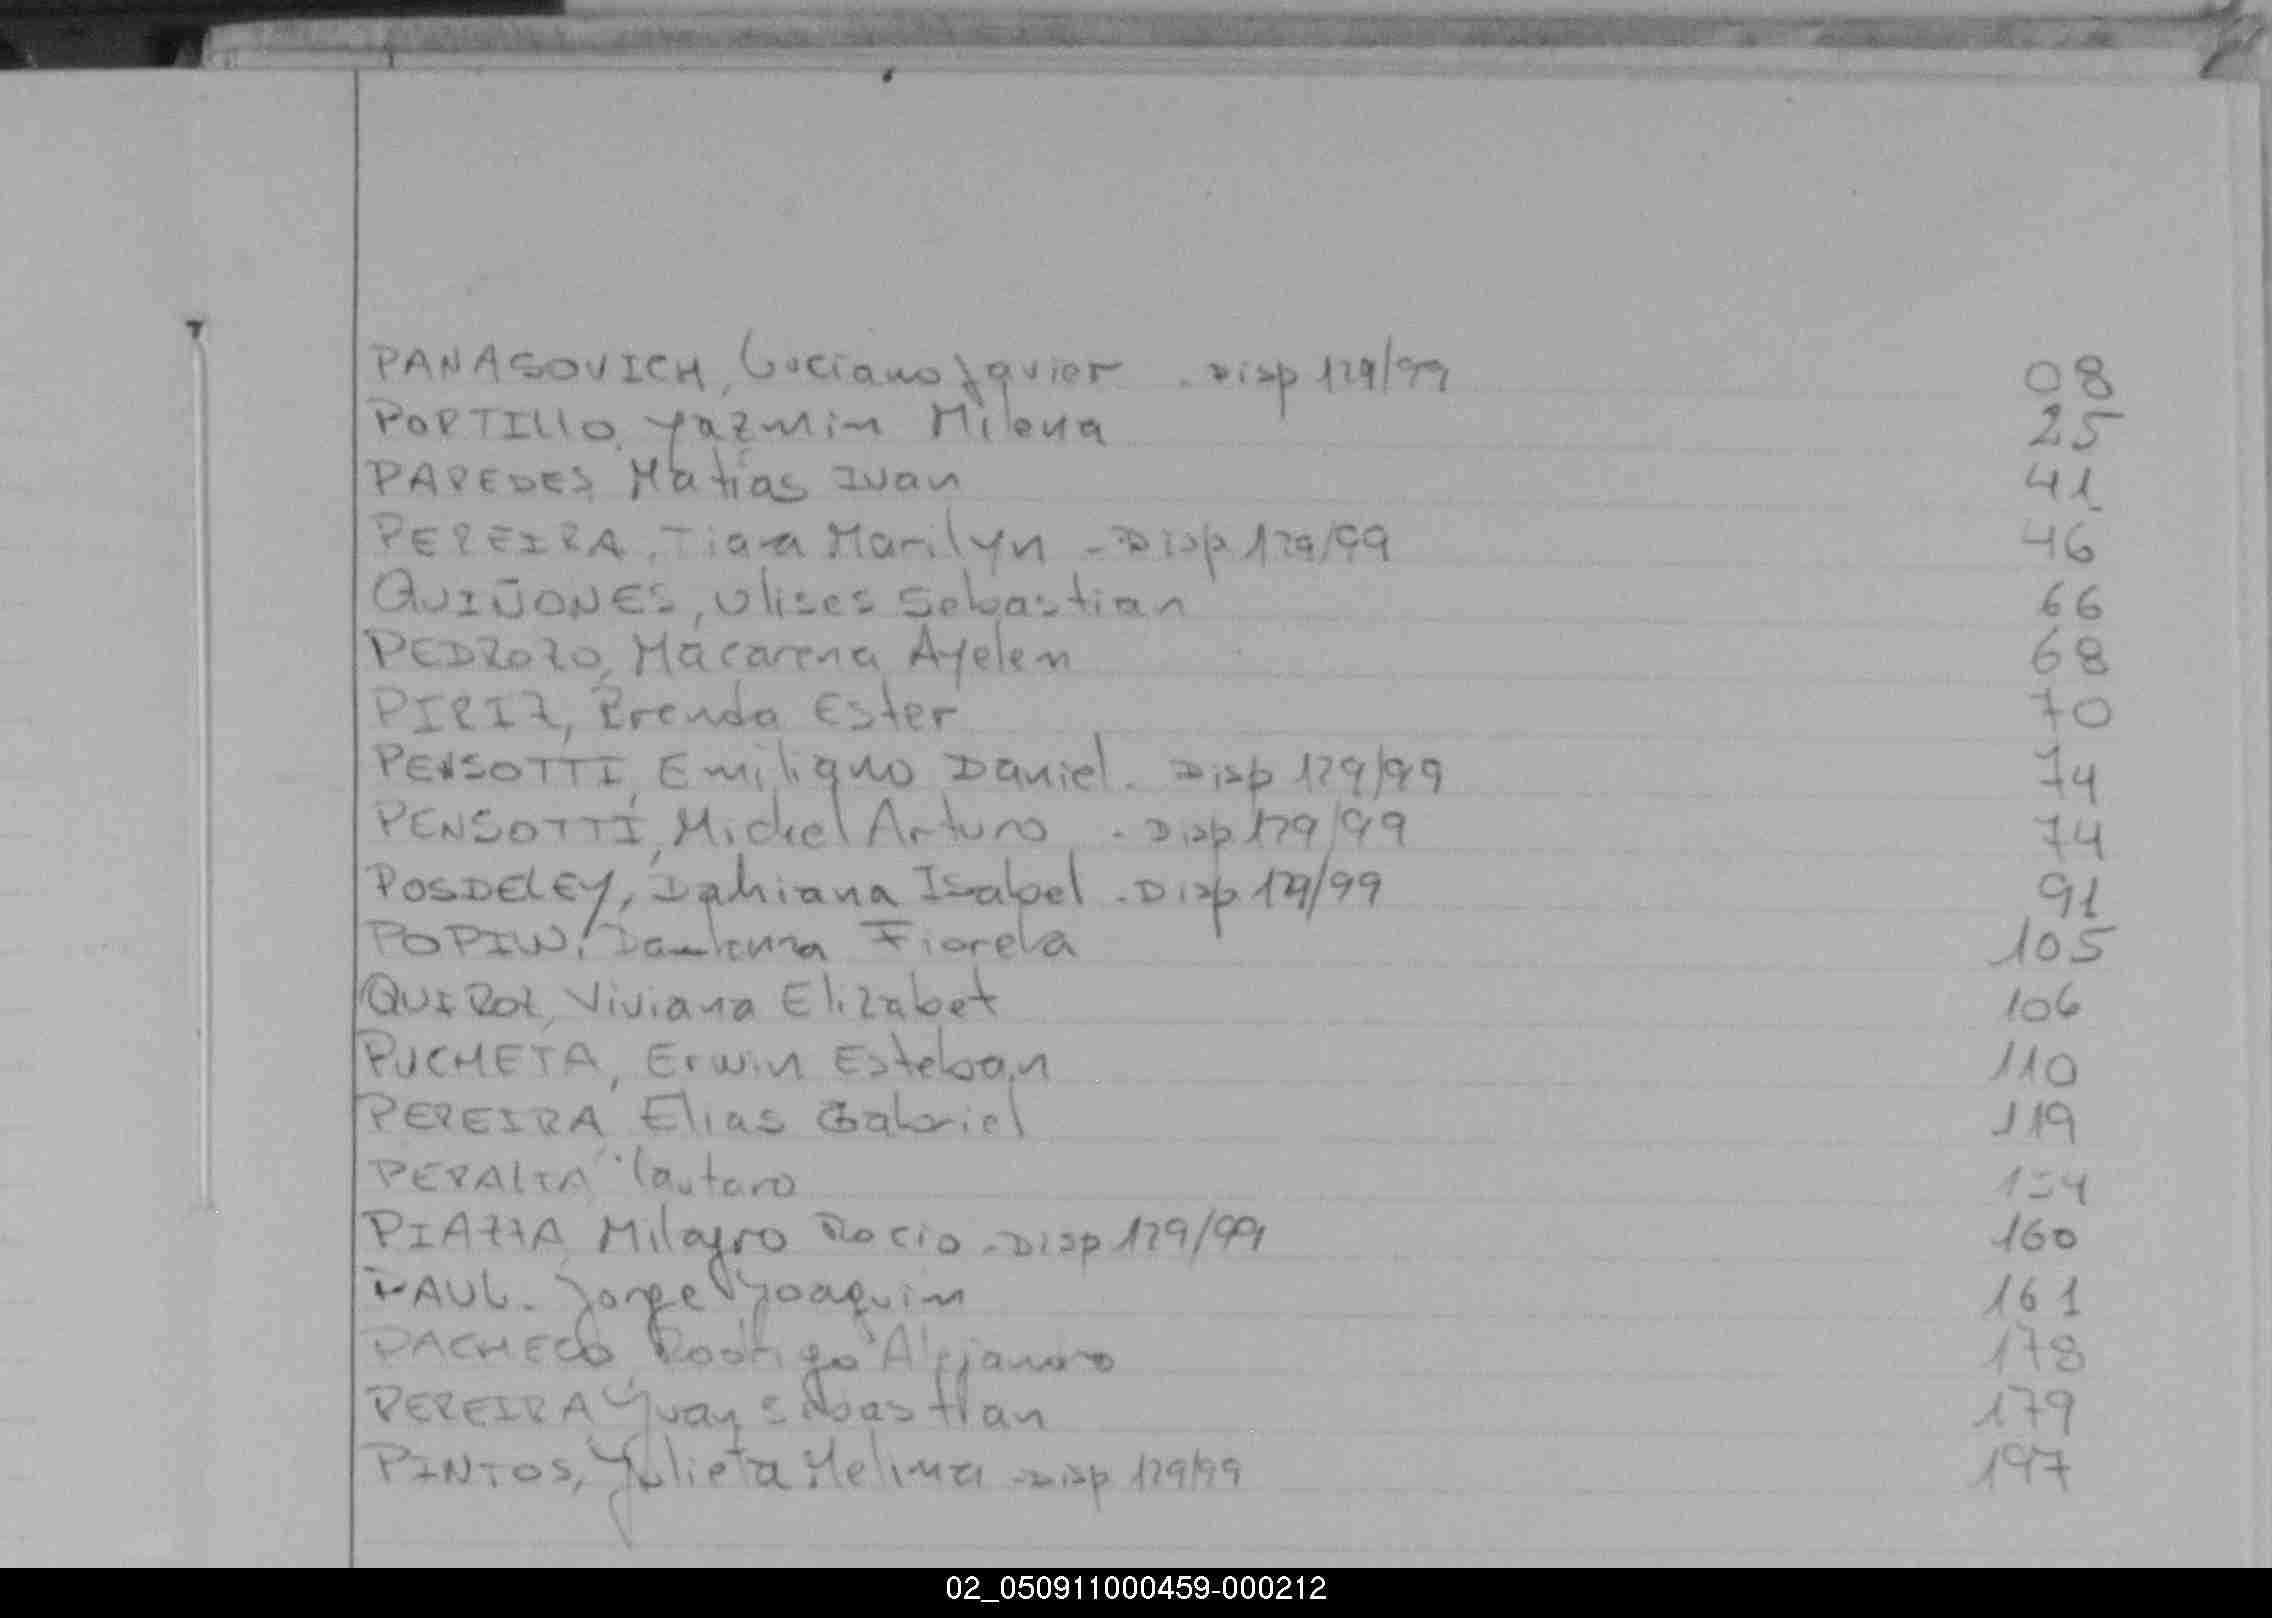 PANASOVICH, Luciano Javier . Disp 129/99 08
PORTILLO, Yazmin Milena 25
PAREDES, Matías Ivan 41
PEREIRA, Tiara Marilyn - Disp 129/99 46
QUIÑONES, Ulises Sebastian 66
PEDROZO, Macarena Ayelen 68
PIRIZ, Brenda Ester 70
PENSOTTI, Emiliano Daniel. Disp 129/99 74
PENSOTTI, Mickel Arturo . Disp 129/99 74
POSDELEY, Dahiana Isabel . Disp 129/99 91
POPIW, Fiorela 105
Viviana Elizabet 106
PUCHETA, Erwin Esteban 110
PEREIRA Elias Gabriel 119
PERALTA Lautaro
PIAZZA, Milagro Rocio . Disp 129/99 160
PAUL. Jorge Joaquim 161
PACHECO, Rodrigo Alejandro 178
PEREIRA Juan Sebastian 179
PINTOS, Yulieta Melina - Disp 129/99 197
02_050911000459-000212